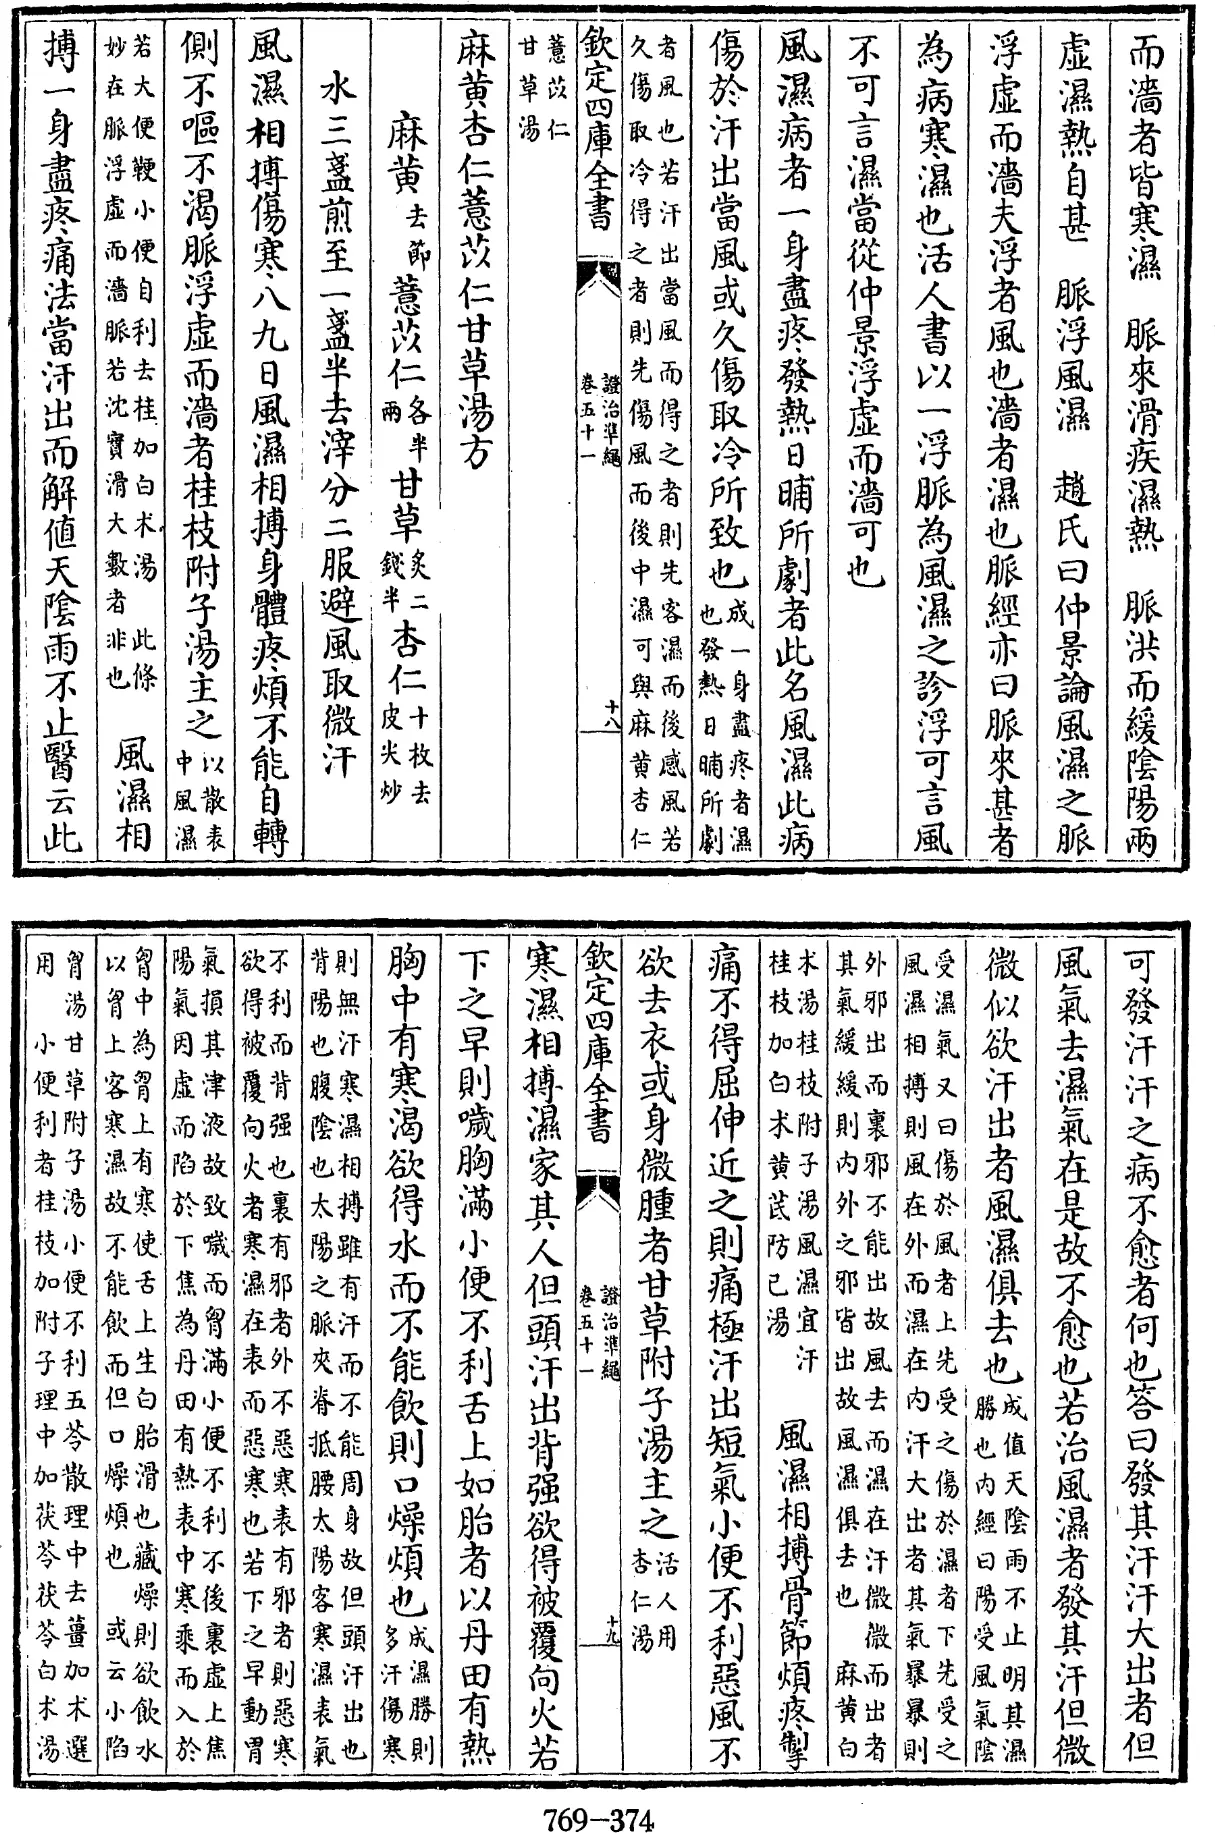 而濇者皆寒濕　脈來滑疾濕熱　脈洪而緩陰陽兩
虛濕熱自甚　脈浮風濕　趙氏曰仲景論風濕之脈
浮虛而濇夫浮者風也濇者濕也脈經亦曰脈來甚者
為病寒濕也活人書以一浮脈為風濕之診浮可言風
不可言濕當從仲景浮虛而濇可也
風濕病者一身盡疼發熱日晡所劇者此名風濕此病
傷於汗出當風或久傷取冷所致也成一身盡疼者濕
也發熱日晡所劇
者風也若汗出當風而得之者則先客濕而後感風若
久傷取冷得之者則先傷風而後中濕可與麻黄杏仁
欽定四庫全書
證治準繩
卷五十一
十八
薏苡仁
甘草湯
麻黄杏仁薏苡仁甘草湯方
麻黄去節薏苡仁各半
兩甘草炙二
錢半杏仁十枚去
皮尖炒
水三盞煎至一盞半去滓分二服避風取微汗
風濕相搏傷寒八九日風濕相搏身體疼煩不能自轉
側不嘔不渴脈浮虛而濇者桂枝附子湯主之以散表
中風濕
若大便鞕小便自利去桂加白术湯　此條
妙在脈浮虛而濇脈若沈實滑大數者非也　風濕相
搏一身盡疼痛法當汗出而解值天陰雨不止醫云此
可發汗汗之病不愈者何也答曰發其汗汗大出者但
風氣去濕氣在是故不愈也若治風濕者發其汗但微
微似欲汗出者風濕俱去也成值天陰雨不止明其濕
勝也内經曰陽受風氣陰
受濕氣又曰傷於風者上先受之傷於濕者下先受之
風濕相搏則風在外而濕在内汗大出者其氣暴暴則
外邪出而裏邪不能出故風去而濕在汗微微而出者
其氣緩緩則内外之邪皆出故風濕俱去也　麻黄白
术湯桂枝附子湯風濕宜汗
桂枝加白术黄芪防己湯　風濕相搏骨節煩疼掣
痛不得屈伸近之則痛極汗出短氣小便不利惡風不
欲去衣或身微腫者甘草附子湯主之活人用
杏仁湯
欽定四庫全書
證治準繩
卷五十一
十九
寒濕相搏濕家其人但頭汗出背强欲得被覆向火若
下之早則噦胸滿小便不利舌上如胎者以丹田有熱
胸中有寒渴欲得水而不能飲則口燥煩也成濕勝則
多汗傷寒
則無汗寒濕相搏雖有汗而不能周身故但頭汗出也
背陽也腹陰也太陽之脈夾脊抵腰太陽客寒濕表氣
不利而背强也裏有邪者外不惡寒表有邪者則惡寒
欲得被覆向火者寒濕在表而惡寒也若下之早動胃
氣損其津液故致噦而胷滿小便不利不後裏虛上焦
陽氣因虛而陷於下焦為丹田有熱表中寒乘而入於
胷中為胷上有寒使舌上生白胎滑也藏燥則欲飲水
以胷上客寒濕故不能飲而但口燥煩也　或云小陷
胷湯甘草附子湯小便不利五苓散理中去薑加术選
用　小便利者桂枝加附子理中加茯苓茯苓白术湯
769-374